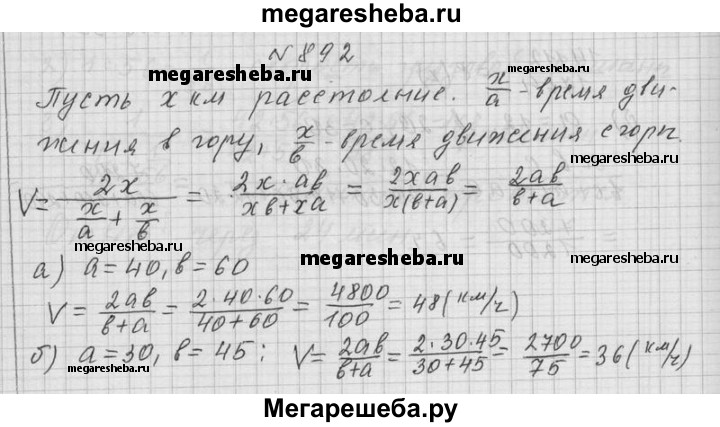 megaresheba.ru
№ 892
megaresheba.ru
Пусть x км расстояние. x/a - время дви-
жения в гору, x/в - время движения с горы.
megaresheba.ru megaresheba.ru
V = 2x / (x/a + x/в) = 2x·aв / (xв+xa) = 2xaв / x(в+a) = 2aв / (в+a)
megaresheba.ru megaresheba.ru
а) a=40, в=60
megaresheba.ru
V = 2aв / (в+a) = 2·40·60 / (40+60) = 4800 / 100 = 48 (км/ч)
б) a=30, в=45: V = 2aв / (в+a) = 2·30·45 / (30+45) = 2700 / 75 = 36 (км/ч)
megaresheba.ru megaresheba.ru
Мегарешеба.ру